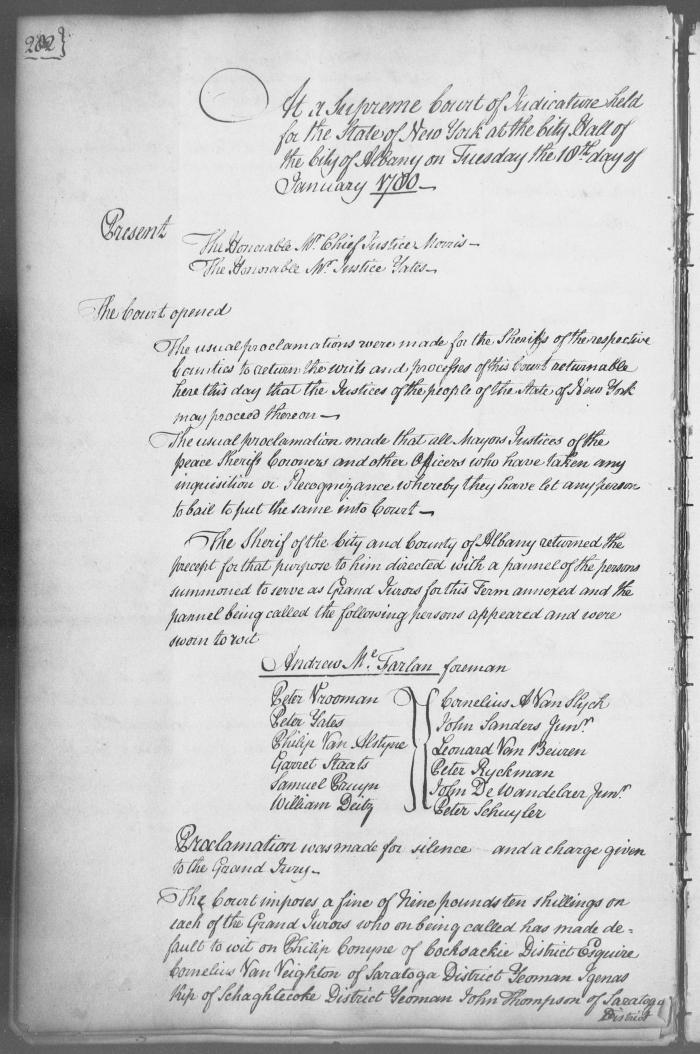 202}
At a Supreme Court of Judicature held
for the State of New York at the City Hall of
the City of Albany on Tuesday the 18th day of
January 1780—
Present
The Honorable Mr. Chief Justice Morris—
The Honorable Mr. Justice Yates—
The Court opened
The usual proclamations were made for the Sheriffs of the respective
Counties to return the writs and processes of this Court returnable
here this day that the Justices of the people of the State of New York
may proceed thereon—
The usual proclamation made that all Mayors Justices of the
peace Sheriffs Coroners and other Officers who have taken any
inquisition or Recognizance whereby they have let any person
to bail to put the same into Court—
The Sherif of the City and County of Albany returned the
precept for that purpose to him directed with a pannel of the persons
summoned to serve as Grand Jurors for this Term annexed and the
pannel being called the following persons appeared and were
sworn to wit
Andrew Mc. Farlan foreman
Peter Vrooman } { Cornelius A Van Slyck
Peter Yates John Sanders Junr.
Philip Van Alstyne Leonard Van Beuren
Garret Staats Peter Ryckman
Samuel Pruyn John De Wandelaer Junr.
William Deitz Peter Schuyler
Proclamation was made for silence and a charge given
to the Grand Jury—
The Court imposes a fine of Nine pounds ten shillings on
each of the Grand Jurors who on being called has made de=
fault to wit on Philip Conyne of Cocksackie District Esquire
Cornelius Van Veighton of Saratoga District Yeoman Igenas
Kip of Schaghtecoke District Yeoman John Thompson of Saratoga
District